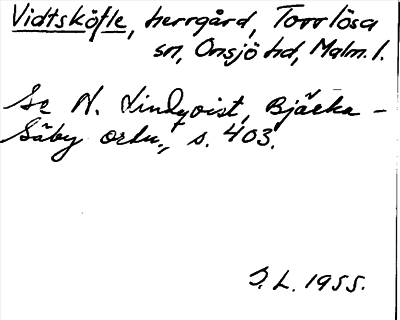 Vidtsköfle, herrgård, Torrlösa
sn, Onsjö hd, Malm. l.
Se N. Lindqvist, Bjärka-
Säby ortn., s. 403.
S. L. 1955.